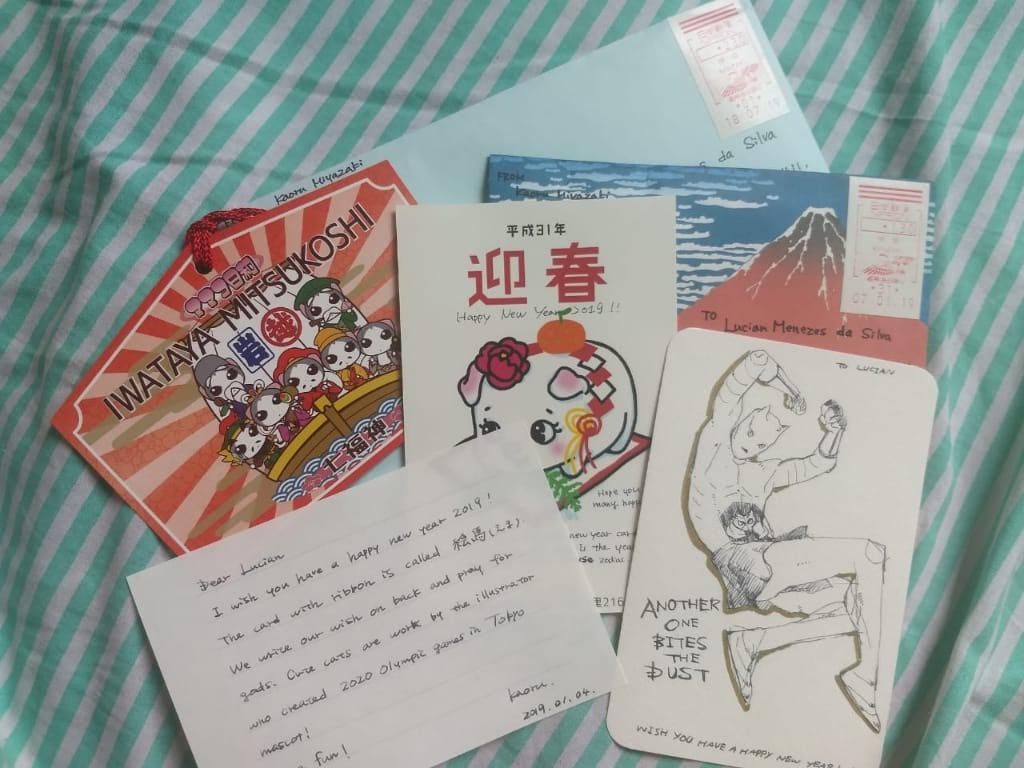 da Silva
Kaoru Miyazaki
18 07 19
FROM
Kaoru Miyazaki
07 01 19
TO Lucian Menezes da Silva
IWATAYA MITSUKOSHI
岩
越
七福神
平成31年
迎春
Happy New Year 2019!!
Hope you
many happ
new year car
is the yea
zodiac
里216
TO LUCIAN
ANOTHER
ONE
BITES
THE
DUST
WISH YOU HAVE A HAPPY NEW YEAR!
Dear Lucian
I wish you have a happy new year 2019!
The card with ribbon is called 絵馬(えま).
We write our wish on back and pray for
gods. Cute cats are work by the illustrator
who created 2020 Olympic games in Tokyo
mascot!
fun!
Kaoru.
2019.01.04.